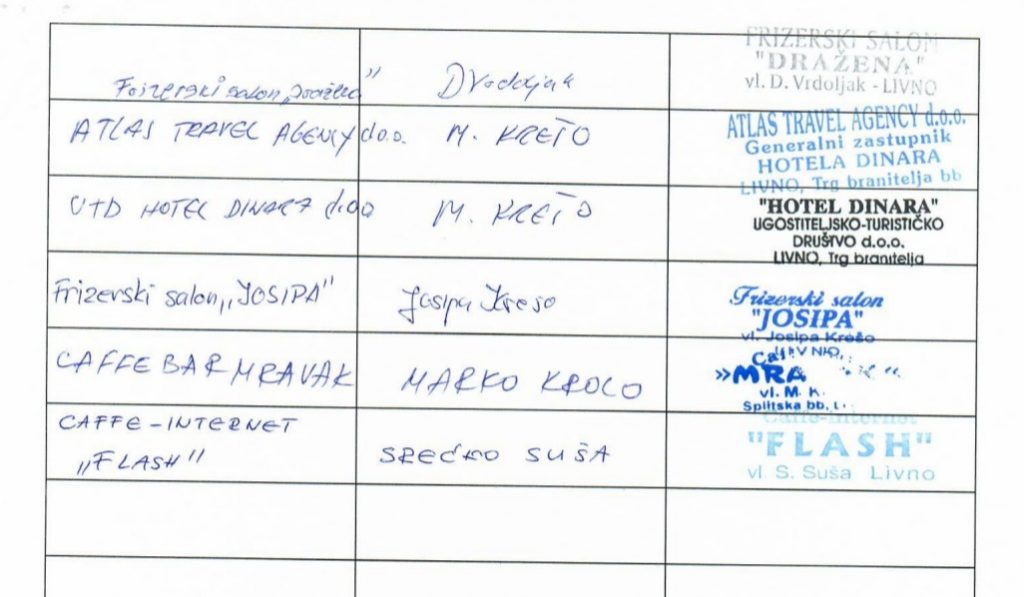 Frizerski salon „Dražena"
D Vrdoljak
FRIZERSKI SALON
"DRAŽENA"
vl. D. Vrdoljak - LIVNO
ATLAS TRAVEL AGENCY d.o.o.
M. KREŠO
ATLAS TRAVEL AGENCY d.o.o.
Generalni zastupnik
HOTELA DINARA
LIVNO, Trg branitelja bb
UTD HOTEL DINARA d.o.o
M. KREŠO
"HOTEL DINARA"
UGOSTITELJSKO-TURISTIČKO
DRUŠTVO d.o.o.
LIVNO, Trg branitelja
Frizerski salon „JOSIPA"
Josipa Krešo
Frizerski salon
"JOSIPA"
vl. Josipa Krešo
LIVNO
CAFFE BAR MRAVAK
MARKO KROLO
»MRA
vl. M. K.
Splitska bb,
CAFFE-INTERNET
„FLASH"
SREĆKO SUŠA
Caffe-Internet
"FLASH"
vl. S. Suša Livno